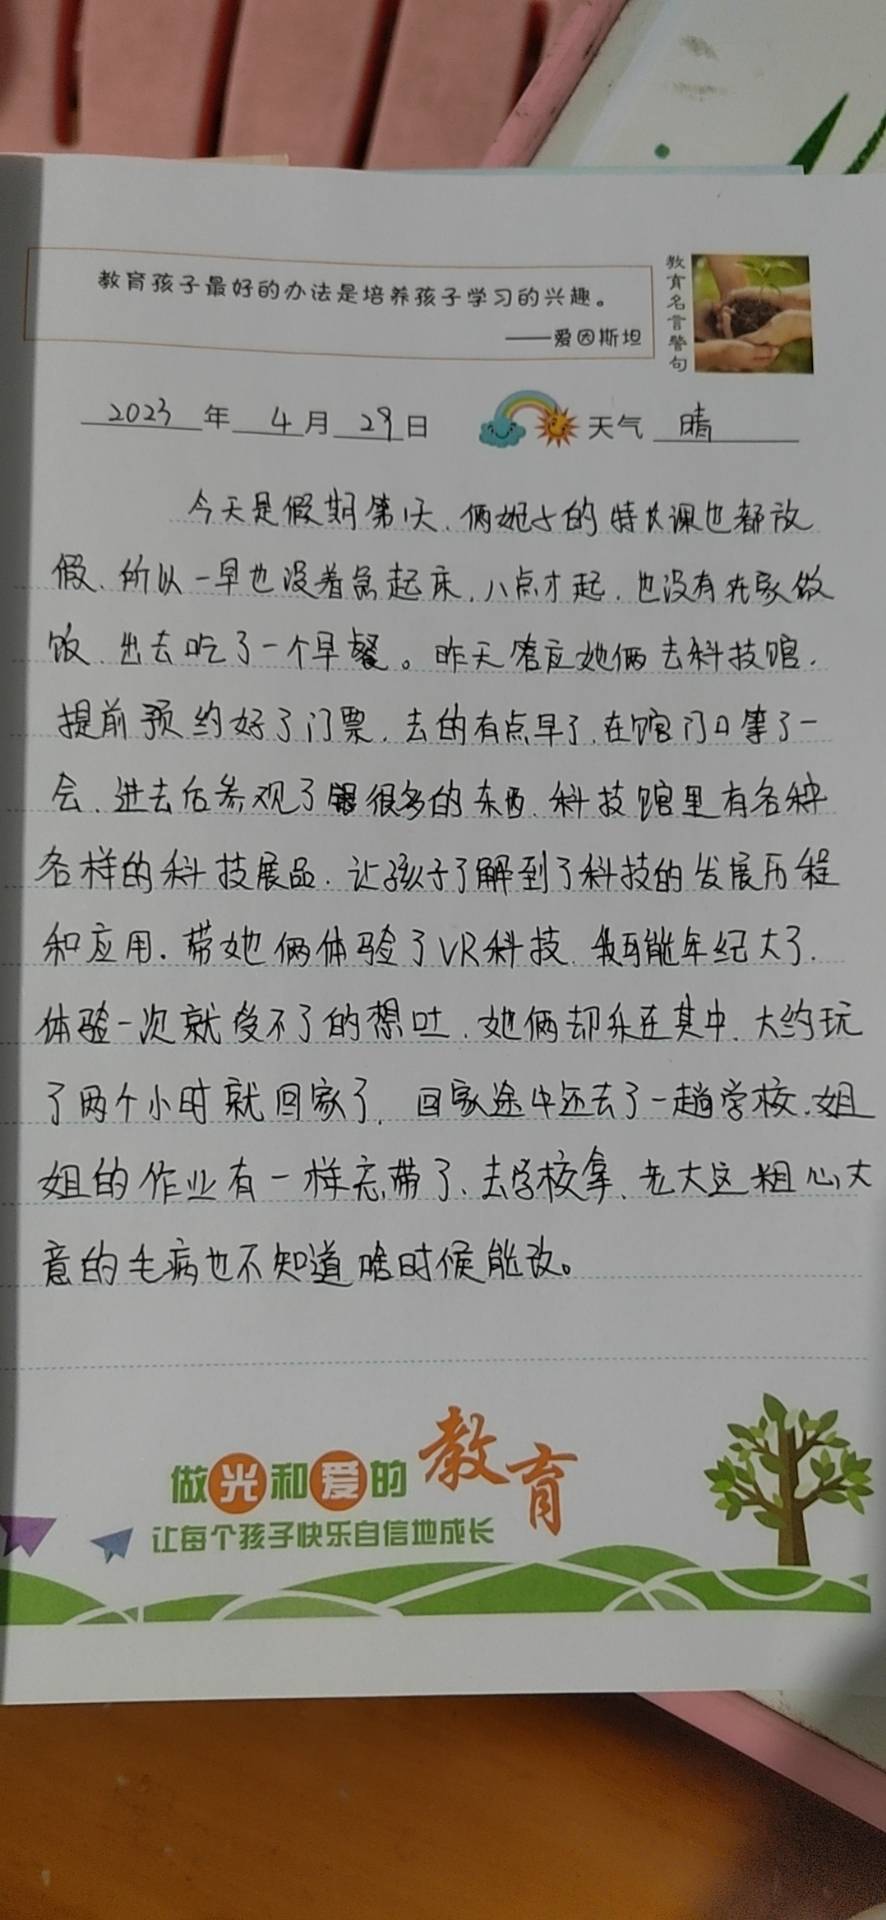 教育孩子最好的办法是培养孩子学习的兴趣。
——爱因斯坦
教育名言警句
2023年4月29日 天气 晴
今天是假期第1天、俩妮子的特长课也都放
假、所以一早也没着急起床、八点才起、也没有在家做
饭、出去吃了一个早餐。昨天答应她俩去科技馆、
提前预约好了门票、去的有点早了、在馆门口等了一
会、进去后参观了很多的东西、科技馆里有各种
各样的科技展品、让孩子了解到了科技的发展历程
和应用、带她俩体验了VR科技、我可能年纪大了、
体验一次就受不了的想吐、她俩却乐在其中、大约玩
了两个小时就回家了、回家途中还去了一趟学校、姐
姐的作业有一样忘带了、去学校拿、老大这粗心大
意的毛病也不知道啥时候能改。
做光和爱的教育
让每个孩子快乐自信地成长